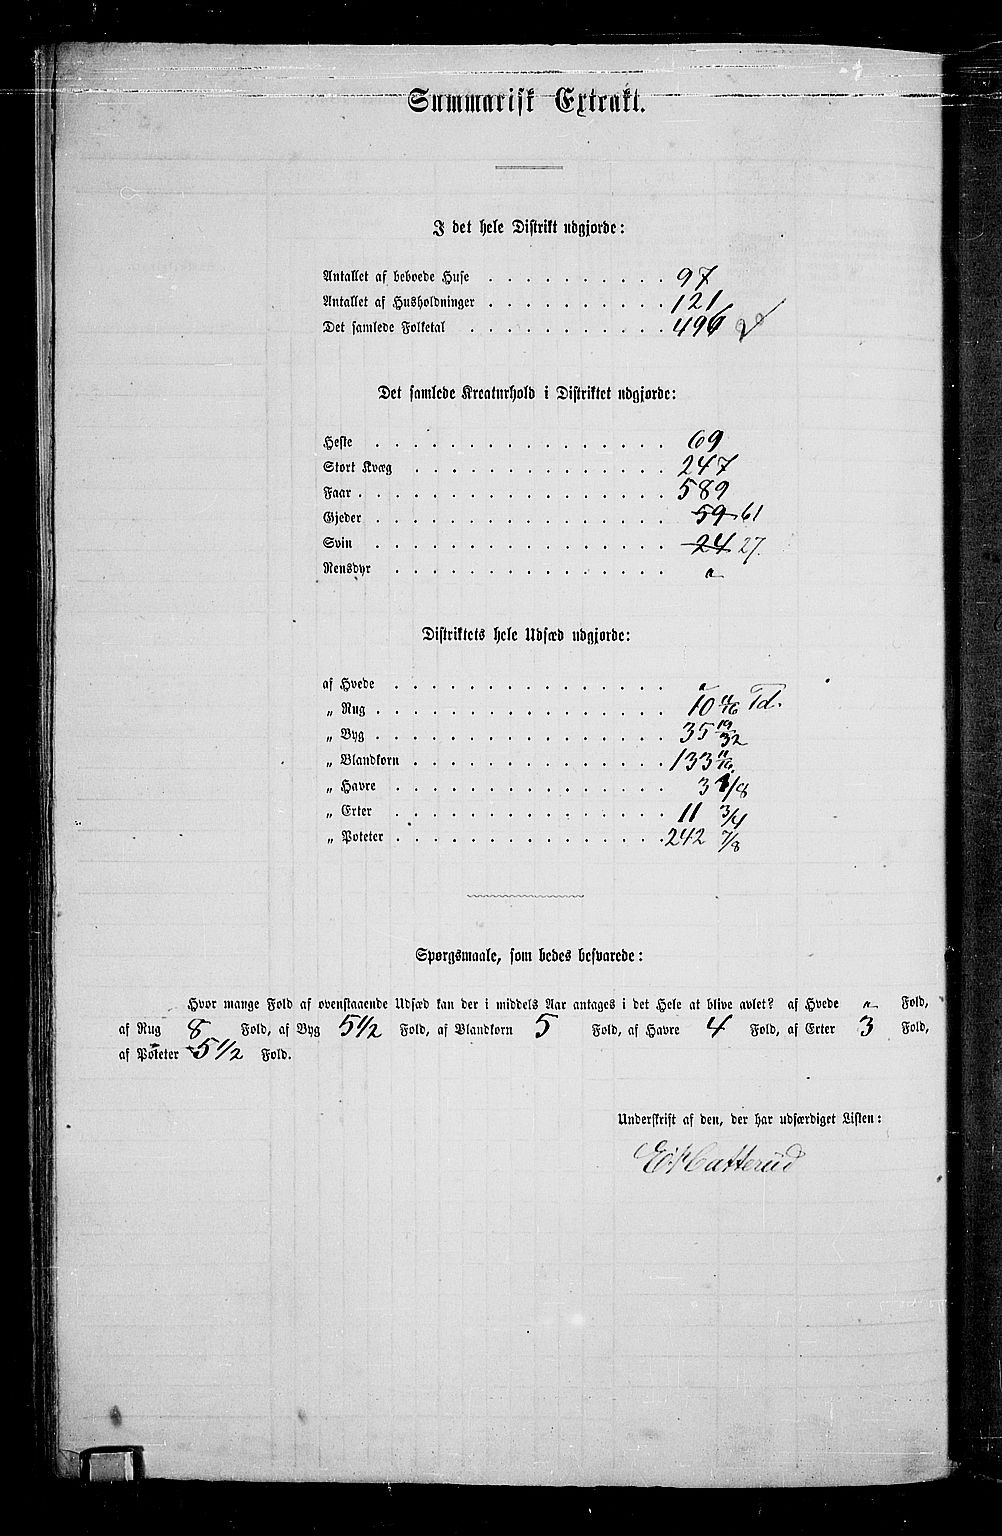 Summarisk Extrakt.
I det hele Distrikt udgjorde:
Antallet af beboede Huse . . . . . . . . . . 97
Antallet af Husholdninger . . . . . . . . . . 121
Det samlede Folketal . . . . . . . . . . . 496
Det samlede Kreaturhold i Distriktet udgjorde:
Heste . . . . . . . . . . . . . . . . 69
Stort Kvæg . . . . . . . . . . . . . . 247
Faar . . . . . . . . . . . . . . . . . 589
Gjeder . . . . . . . . . . . . . . . . 59 61
Svin . . . . . . . . . . . . . . . . 24 27.
Rensdyr . . . . . . . . . . . . . . . "
Distriktets hele Udsæd udgjorde:
af Hvede . . . . . . . . . . . . . . . "
„ Rug . . . . . . . . . . . . . . . . 10 Td.
„ Byg . . . . . . . . . . . . . . . . 35 19/32
„ Blandkorn . . . . . . . . . . . . . . 133 11/16
„ Havre . . . . . . . . . . . . . . . 3 1/8
„ Erter . . . . . . . . . . . . . . . 11 3/4
„ Poteter . . . . . . . . . . . . . . . 242 7/8
Spørgsmaale, som bedes besvarede:
Hvor mange Fold af ovenstaaende Udsæd kan der i middels Aar antages i det Hele at blive avlet? af Hvede " Fold,
af Rug 8 Fold, af Byg 5 1/2 Fold, af Blandkorn 5 Fold, af Havre 4 Fold, af Erter 3 Fold,
af Poteter 5 1/2 Fold.
Underskrift af den, der har udfærdiget Listen: